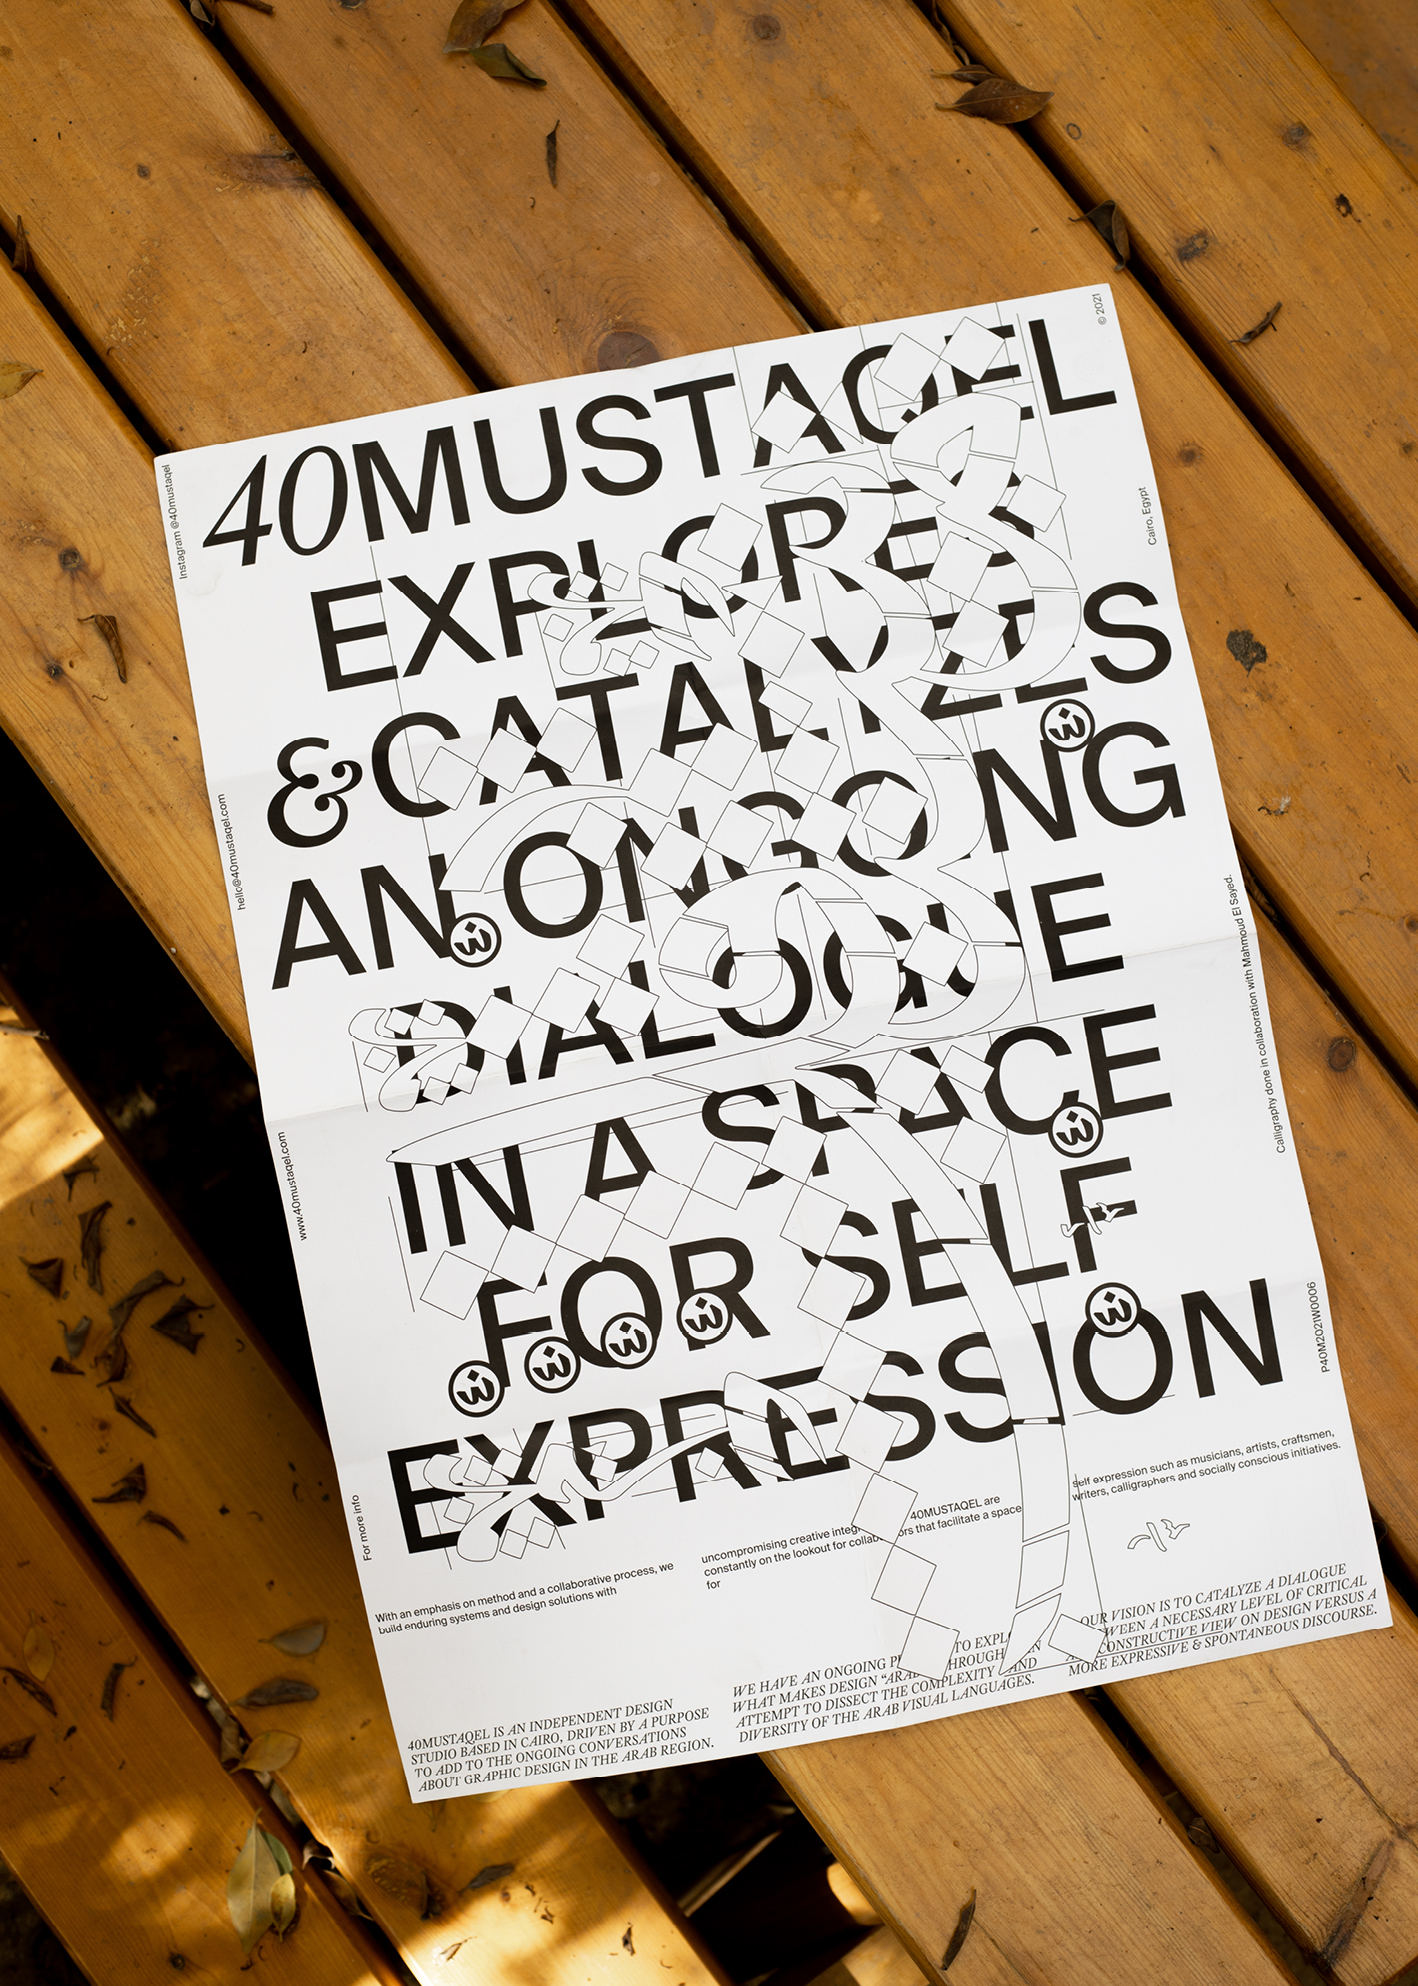 © 2021
40MUSTAQEL
Instagram @40mustaqel
EXPLORES
Cairo, Egypt
& CATALYZES
AN ONGOING
hello@40mustaqel.com
DIALOGUE
IN A SPACE
Calligraphy done in collaboration with Mahmoud El Sayed.
www.40mustaqel.com
FOR SELF
EXPRESSION
P40M2021W0006
For more info
With an emphasis on method and a collaborative process, we
build enduring systems and design solutions with
uncompromising creative 40MUSTAQEL are
constantly on the lookout for that facilitate a space
for
self expression such as musicians, artists, craftsmen,
writers, calligraphers and socially conscious initiatives.
40MUSTAQEL IS AN INDEPENDENT DESIGN
STUDIO BASED IN CAIRO, DRIVEN BY A PURPOSE
TO ADD TO THE ONGOING CONVERSATIONS
ABOUT GRAPHIC DESIGN IN THE ARAB REGION.
WE HAVE AN ONGOING TO
WHAT MAKES DESIGN THROUGH AN
ATTEMPT TO DISSECT THE COMPLEXITY AND
DIVERSITY OF THE ARAB VISUAL LANGUAGES.
OUR VISION IS TO CATALYZE A DIALOGUE
A NECESSARY LEVEL OF CRITICAL
CONSTRUCTIVE VIEW ON DESIGN VERSUS A
MORE EXPRESSIVE & SPONTANEOUS DISCOURSE.